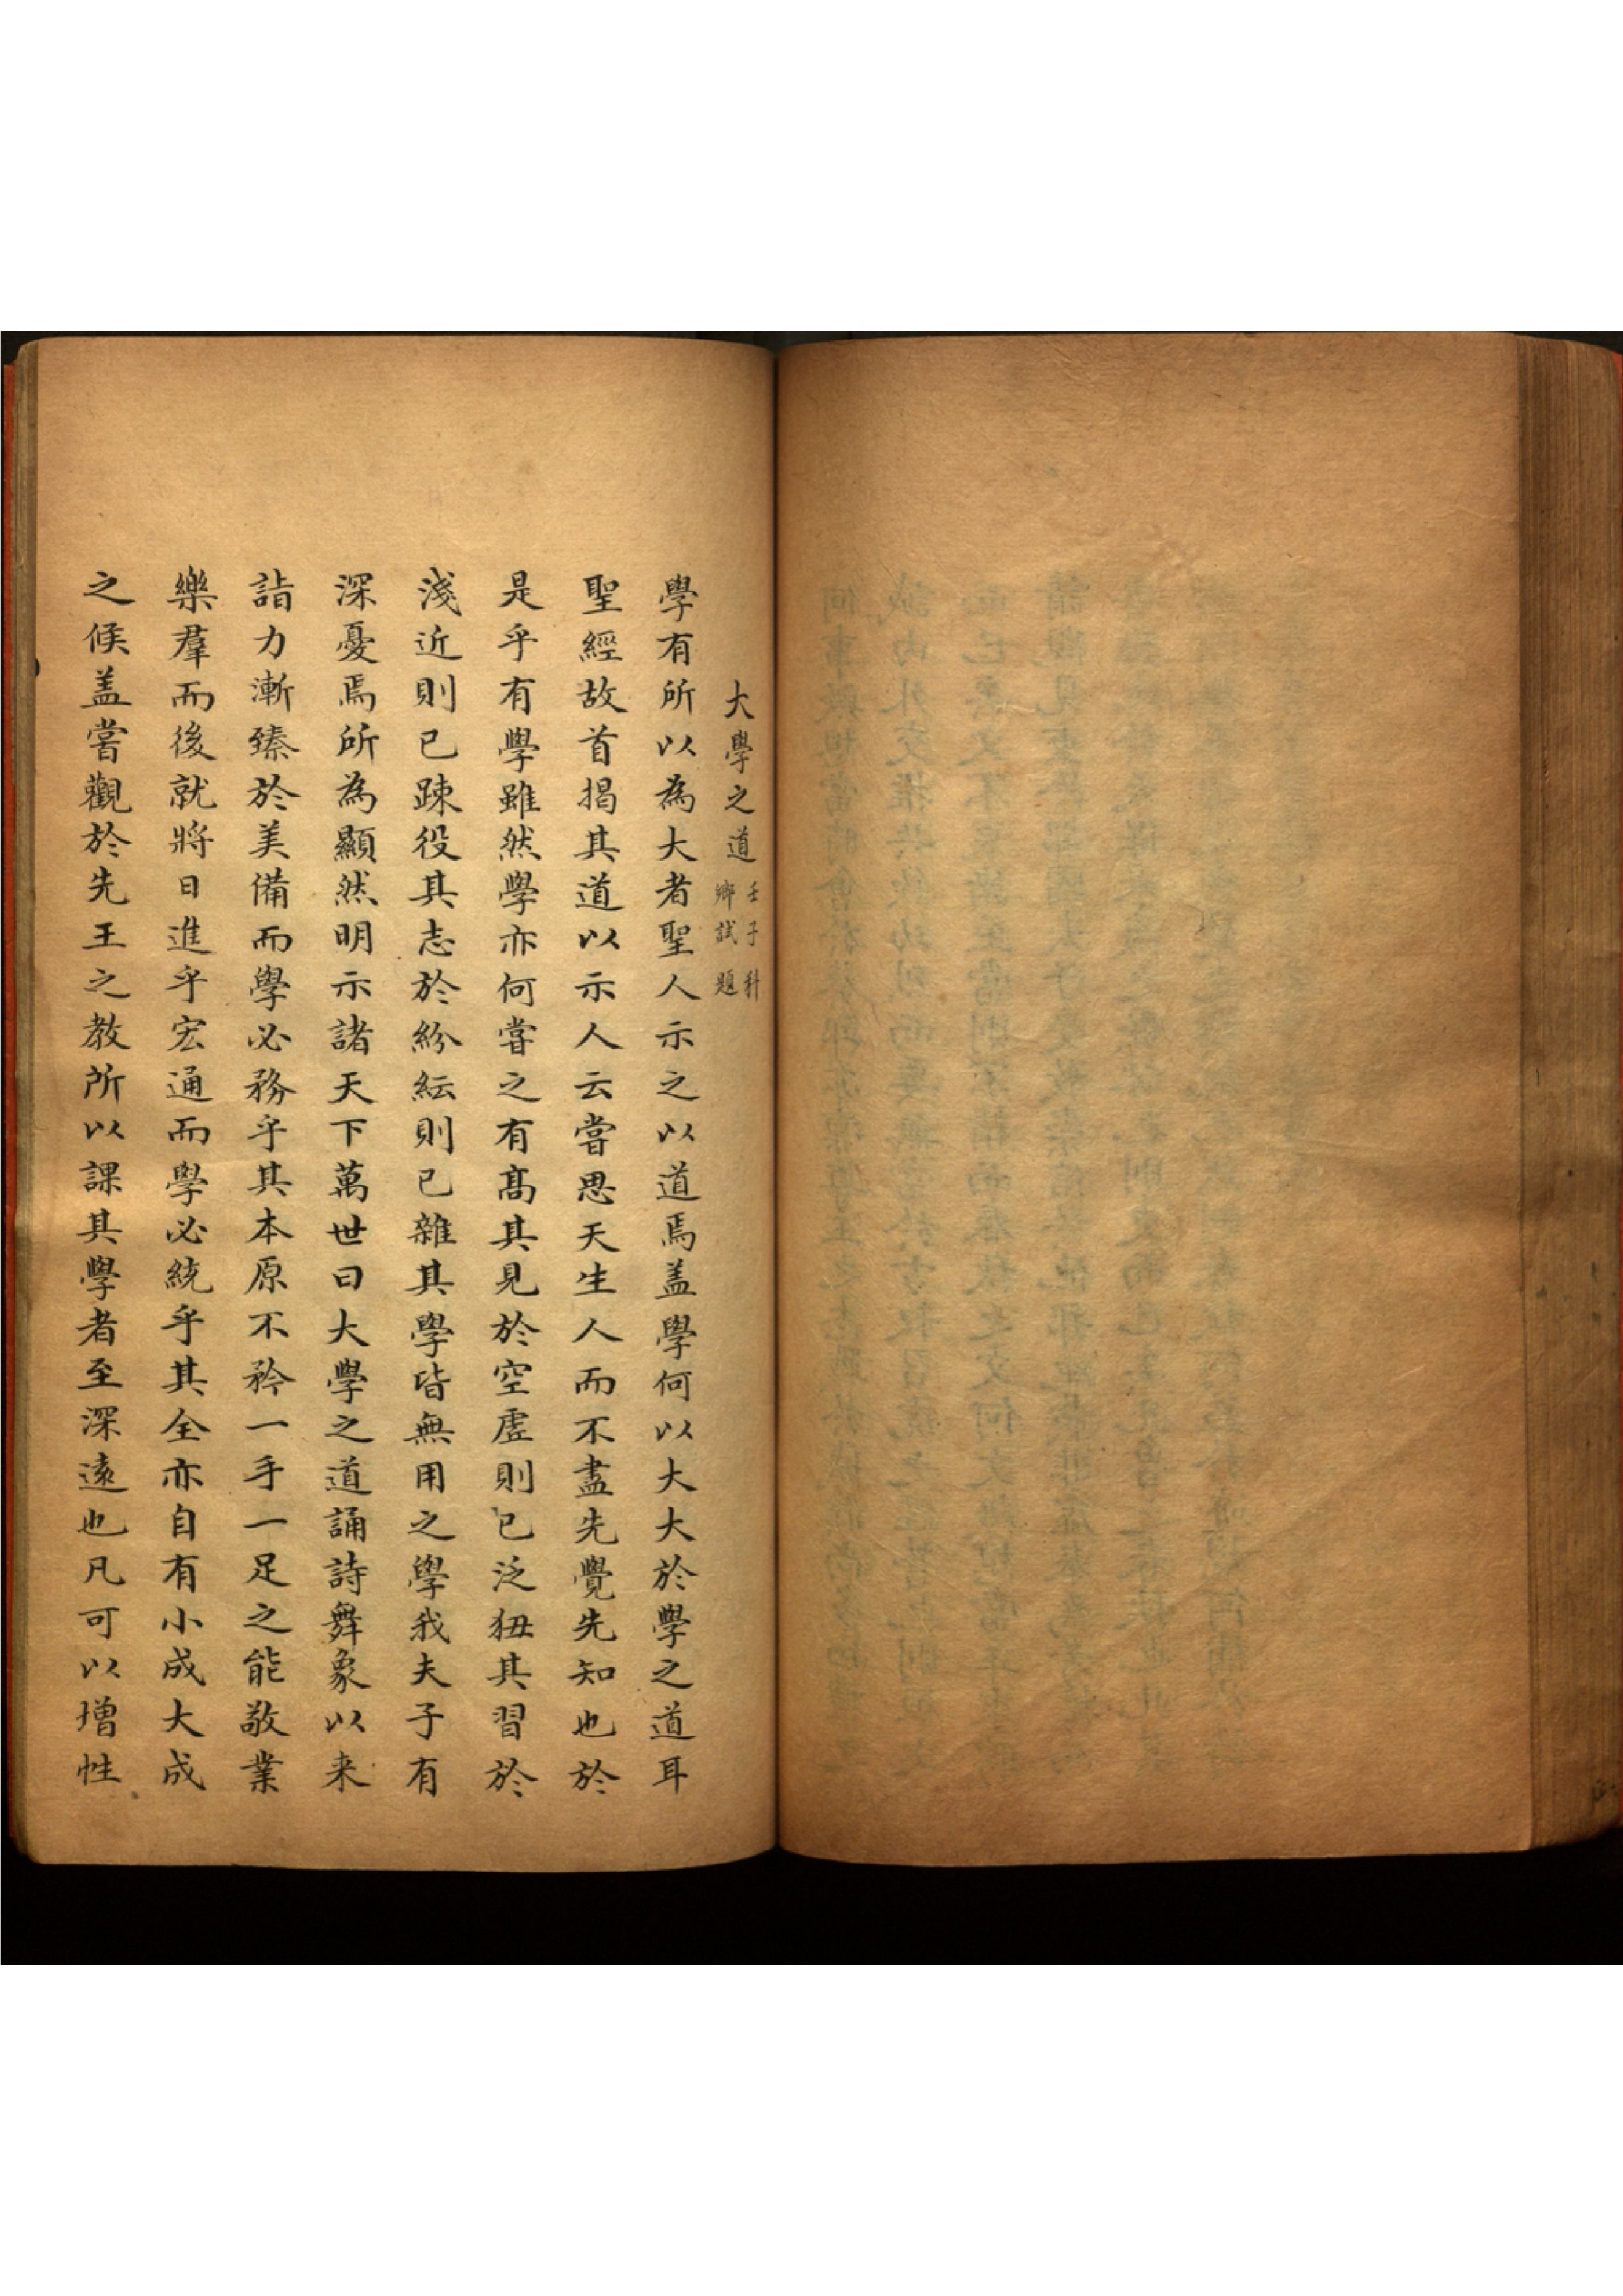 大學之道 壬子科鄉試題
學有所以為大者聖人示之以道焉盖學何以大大於學之道耳
聖經故首揭其道以示人云嘗思天生人而不盡先覺先知也於
是乎有學雖然學亦何嘗之有髙其見於空虛則已泛狃其習於
淺近則已踈役其志於紛紜則已雜其學皆無用之學我夫子有
深憂焉所為顯然明示諸天下萬世曰大學之道誦詩舞象以来
詣力漸臻於美備而學必務乎其本原不矜一手一足之能敬業
樂羣而後就將日進乎宏通而學必統乎其全亦自有小成大成
之候盖嘗觀於先王之教所以課其學者至深遠也凡可以增性